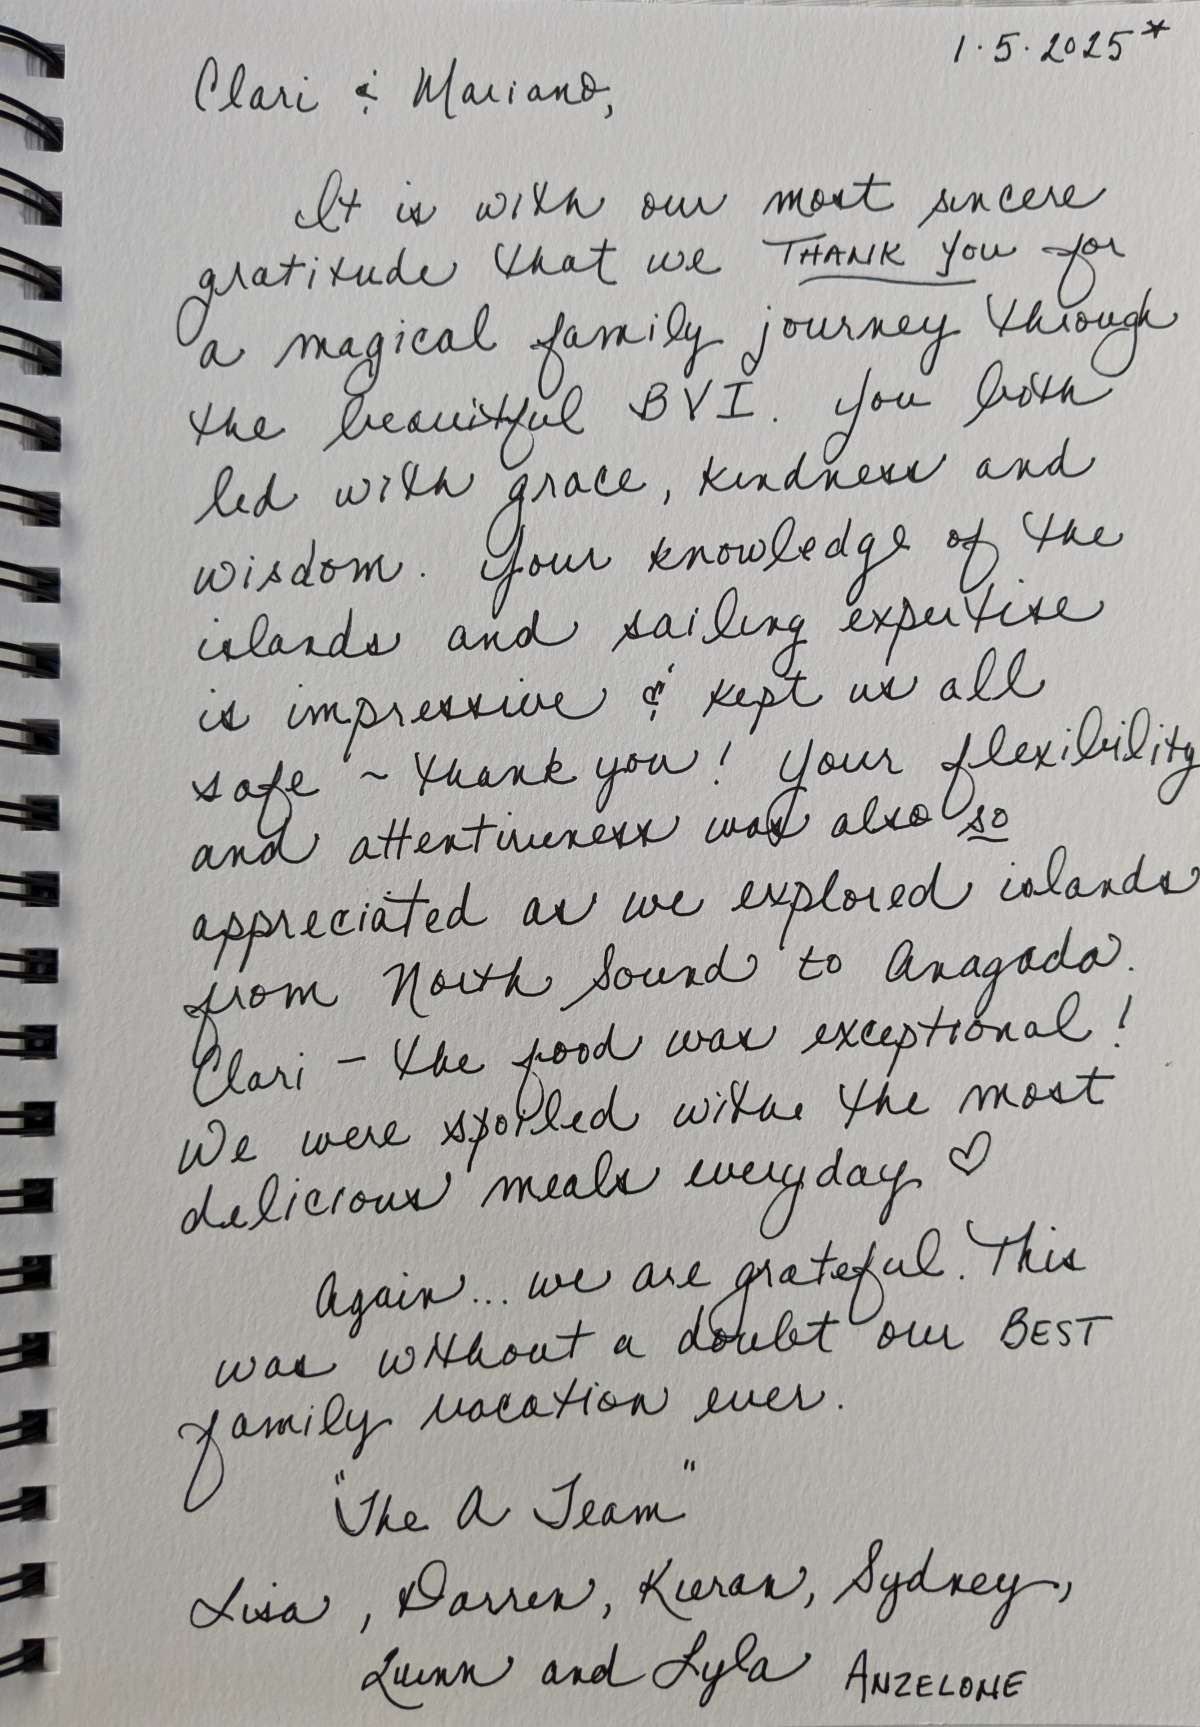 1.5.2025*
Clari & Mariano,
It is with our most sincere
gratitude that we THANK YOU for
a magical family journey through
the beautiful BVI. You both
led with grace, kindness and
wisdom. Your knowledge of the
islands and sailing expertise
is impressive & kept us all
safe ~ thank you! Your flexibility
and attentiveness was also so
appreciated as we explored islands
from North Sound to Anagada.
Clari - the food was exceptional!
We were spoiled withe the most
delicious meals everyday ♡
Again... we are grateful. This
was without a doubt our BEST
family vacation ever.
"The A Team"
Lisa, Darren, Kieran, Sydney,
Quinn and Lyla ANZELONE